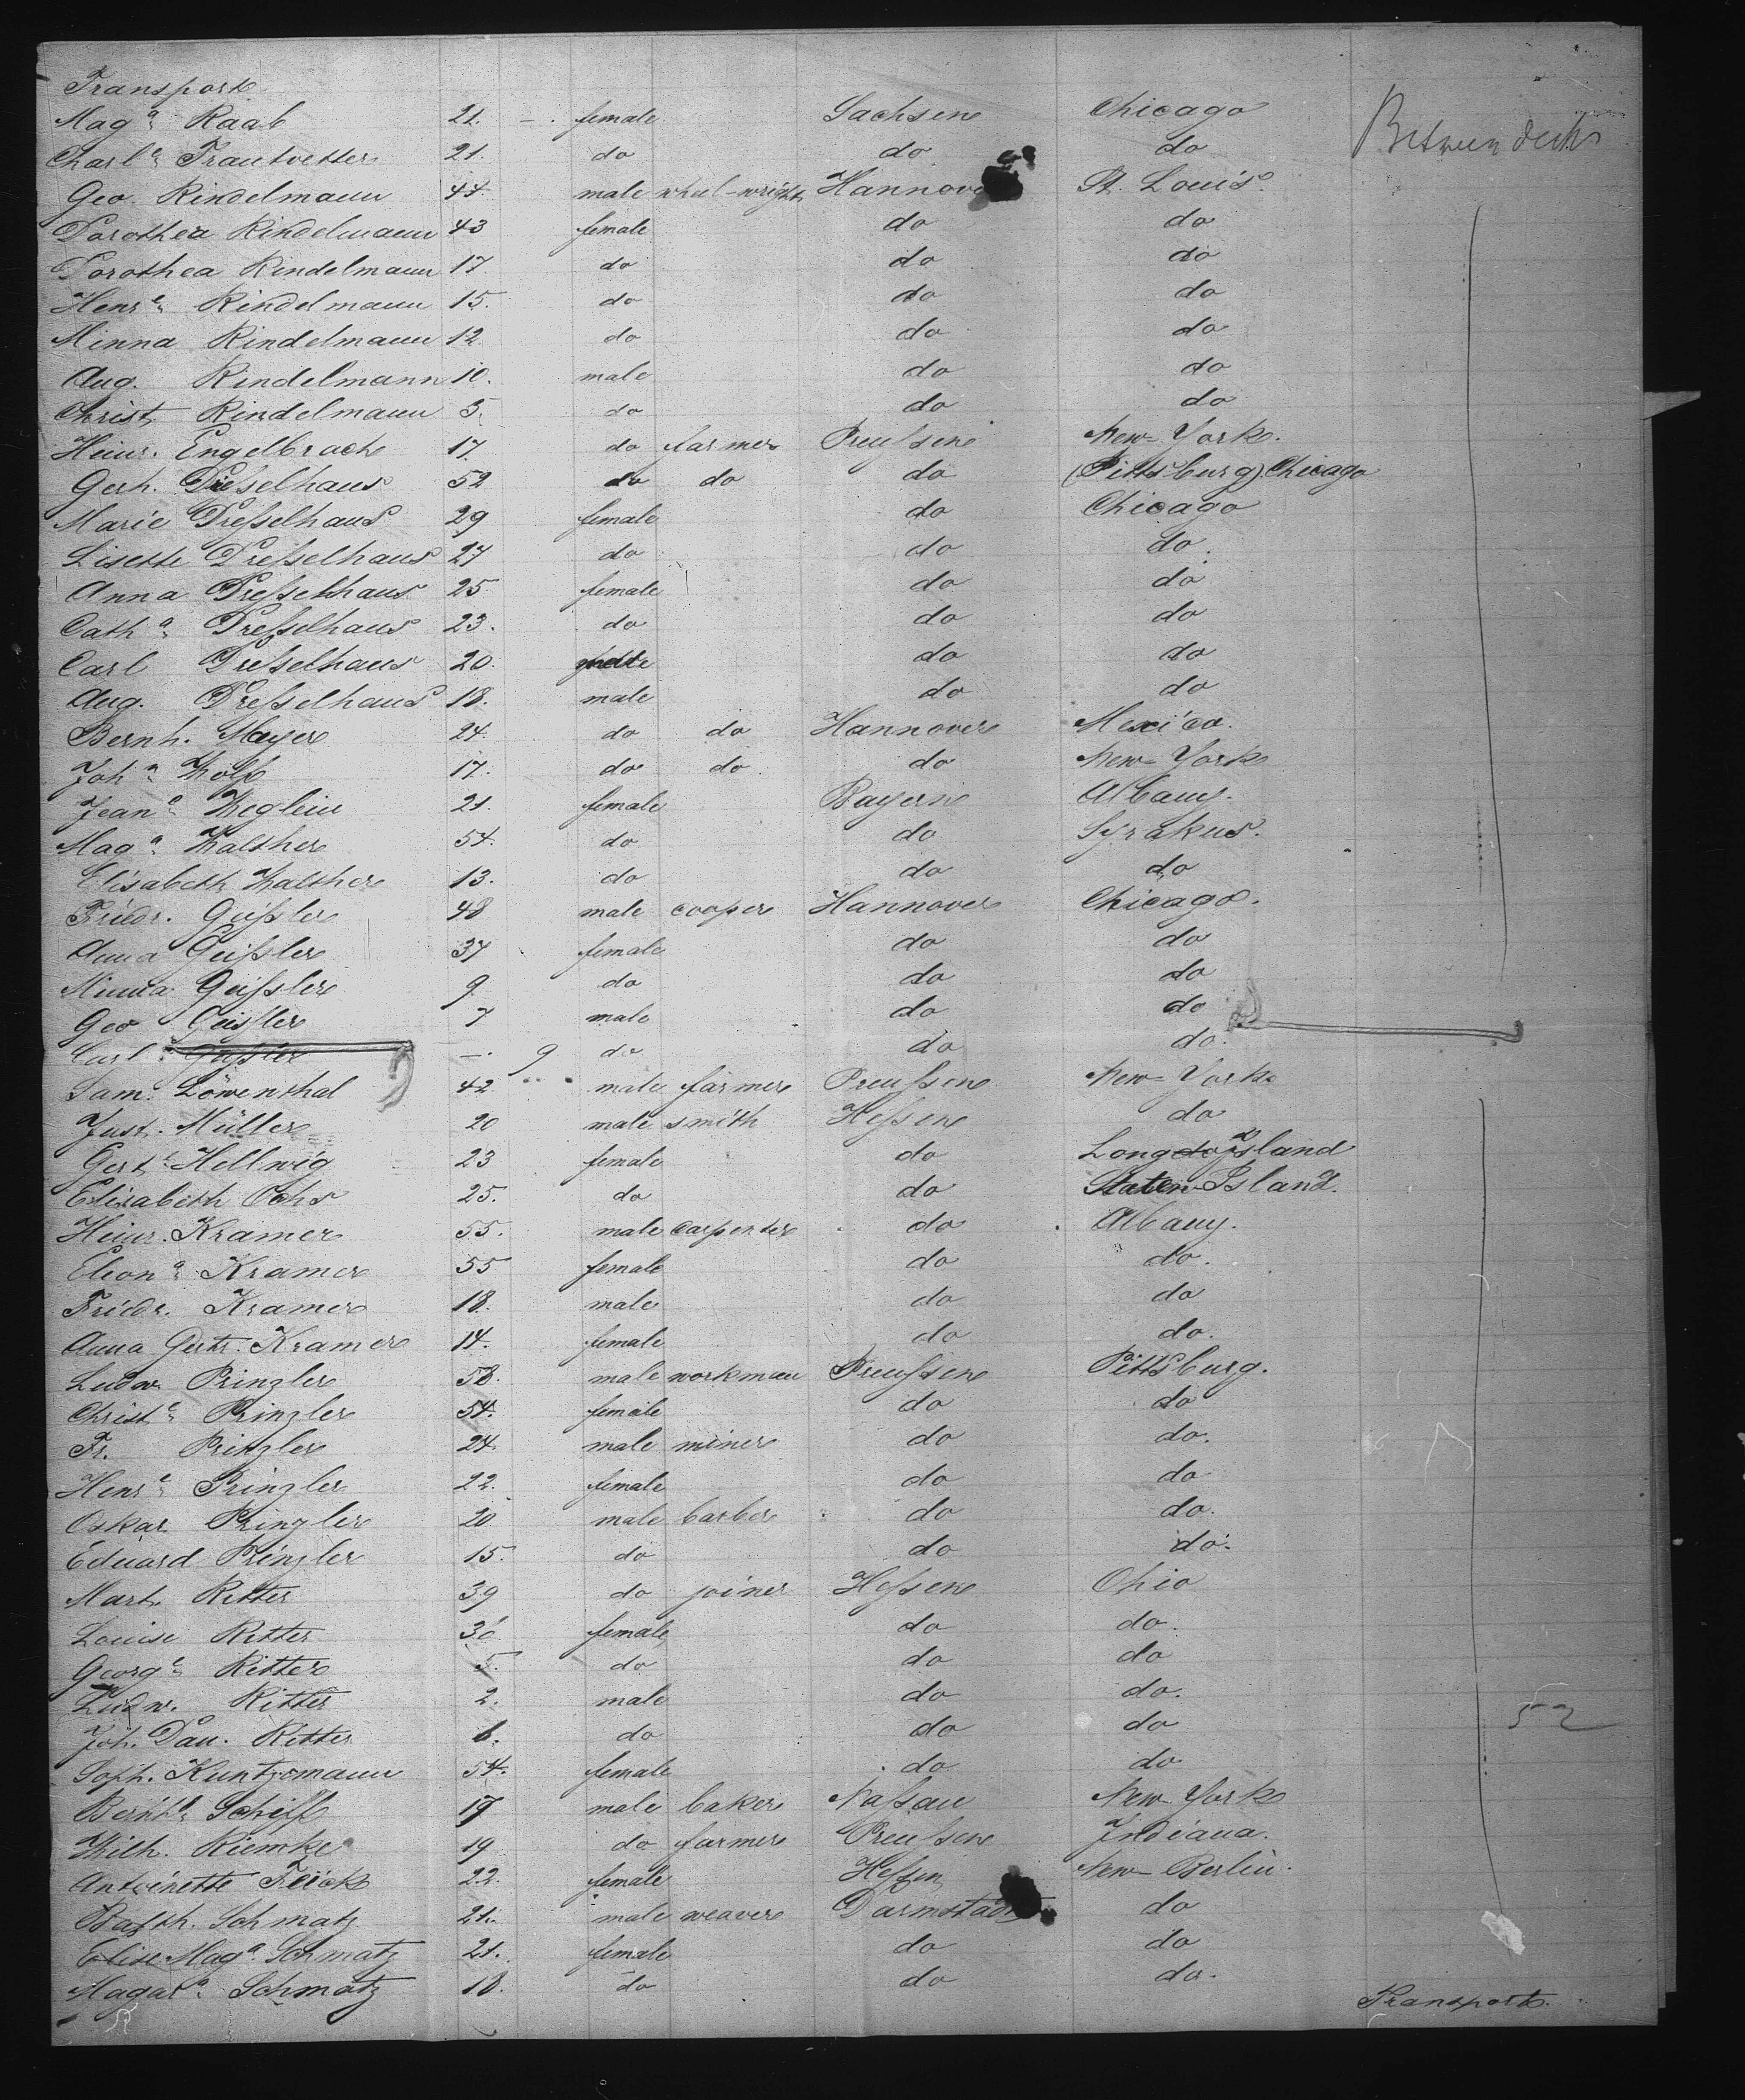 Transport
Mag.a Raab 21. - . female Sachsen Chicago Between decks
Charl.e Trautvetter 21. do do do
Geo. Rindelmann 44. male wheel-wright Hannover St. Louis.
Dorothea Rindelmann 43 female do do
Dorothea Rindelmann 17 do do do
Henr.e Rindelmann 15. do do do
Minna Rindelmann 12. do do do
Aug. Rindelmann 10. male do do
Christ. Rindelmann 5. do do do
Heinr. Engelbrach 17. do farmer Preußen New-York.
Gerh. Dreßelhaus 52 do do do (Pittsburg) Chicago
Marie Dreßelhaus 29 female do Chicago
Lisette Dreßelhaus 27 do do do.
Anna Dreßelhaus 25. female do do
Cath.a Dreßelhaus 23. do do do
Carl Dreßelhaus 20. do do
Aug. Dreßelhaus 18. male do do
Bernh. Meyer 24. do do Hannover Mexico.
Joh.n Wolf 17. do do do New-York
Jean.e Weglein 21. female Bayern Albany.
Mag.a Walther 54. do do Syrakus.
Elisabeth Walther 13. do do do
Friedr. Geißler 48 male cooper Hannover Chicago.
Anna Geißler 37 female do do
Minna Geißler 9. do do do
Geo Geißler 7 male do do
Carl Geißler -. 9 do do do.
Sam. Löwenthal 42 male farmer Preußen New-York
Just. Müller 20 male smith Heßen do
Gert.e Hellwig 23 female do Long Island
Elisabeth Ochs 25. do do Staten-Island.
Heinr. Kramer 55. male carpenter do Albany.
Eleon.a Kramer 55 female do do.
Friedr. Kramer 18. male do do
Anna Gertr. Kramer 14. female do do.
Ludw. Prinzler 58. male workman Preußen Pittsburg.
Christ.e Prinzler 54. female do do
Fr. Prinzler 24. male miner do do.
Henr.e Prinzler 22. female do do
Oskar Prinzler 20 male barber do do.
Eduard Prinzler 15. do do do.
Mart. Ritter 39 do joiner Heßen Ohio
Louise Ritter 36 female do do.
Georg.e Ritter 5. do do do
Ludw. Ritter 2. male do do. 52
Joh. Dan. Ritter 6. do do do
Soph. Kuntzemann 54. female do do
Schiff 17 male baker Naßau New-York
Wilh. Riemke 19 do farmer Preußen Indiana.
Antoinette Feick 22. female Heßen New-Berlin.
Balth. Schmatz 21. male weaver Darmstadt do
Elise Mag.a Schmatz 21. female do do
Magar.a Schmatz 18. do do do.
Transport.